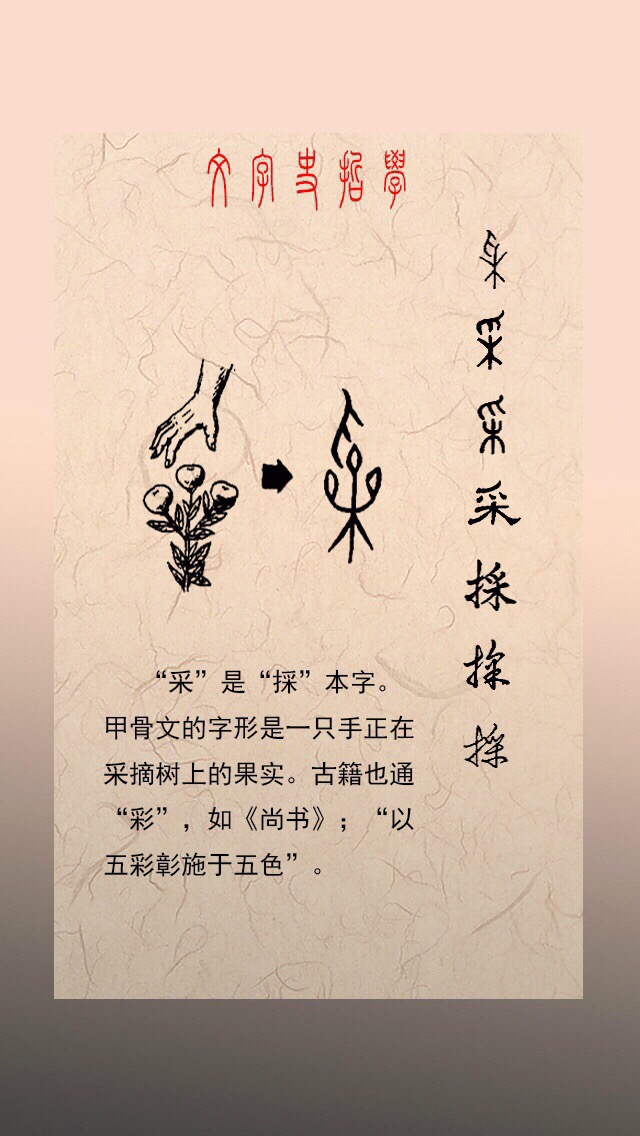 文字史哲學
采
采
采
采
採
採
採
“采”是“採”本字。
甲骨文的字形是一只手正在
采摘树上的果实。古籍也通
“彩”，如《尚书》；“以
五彩彰施于五色”。